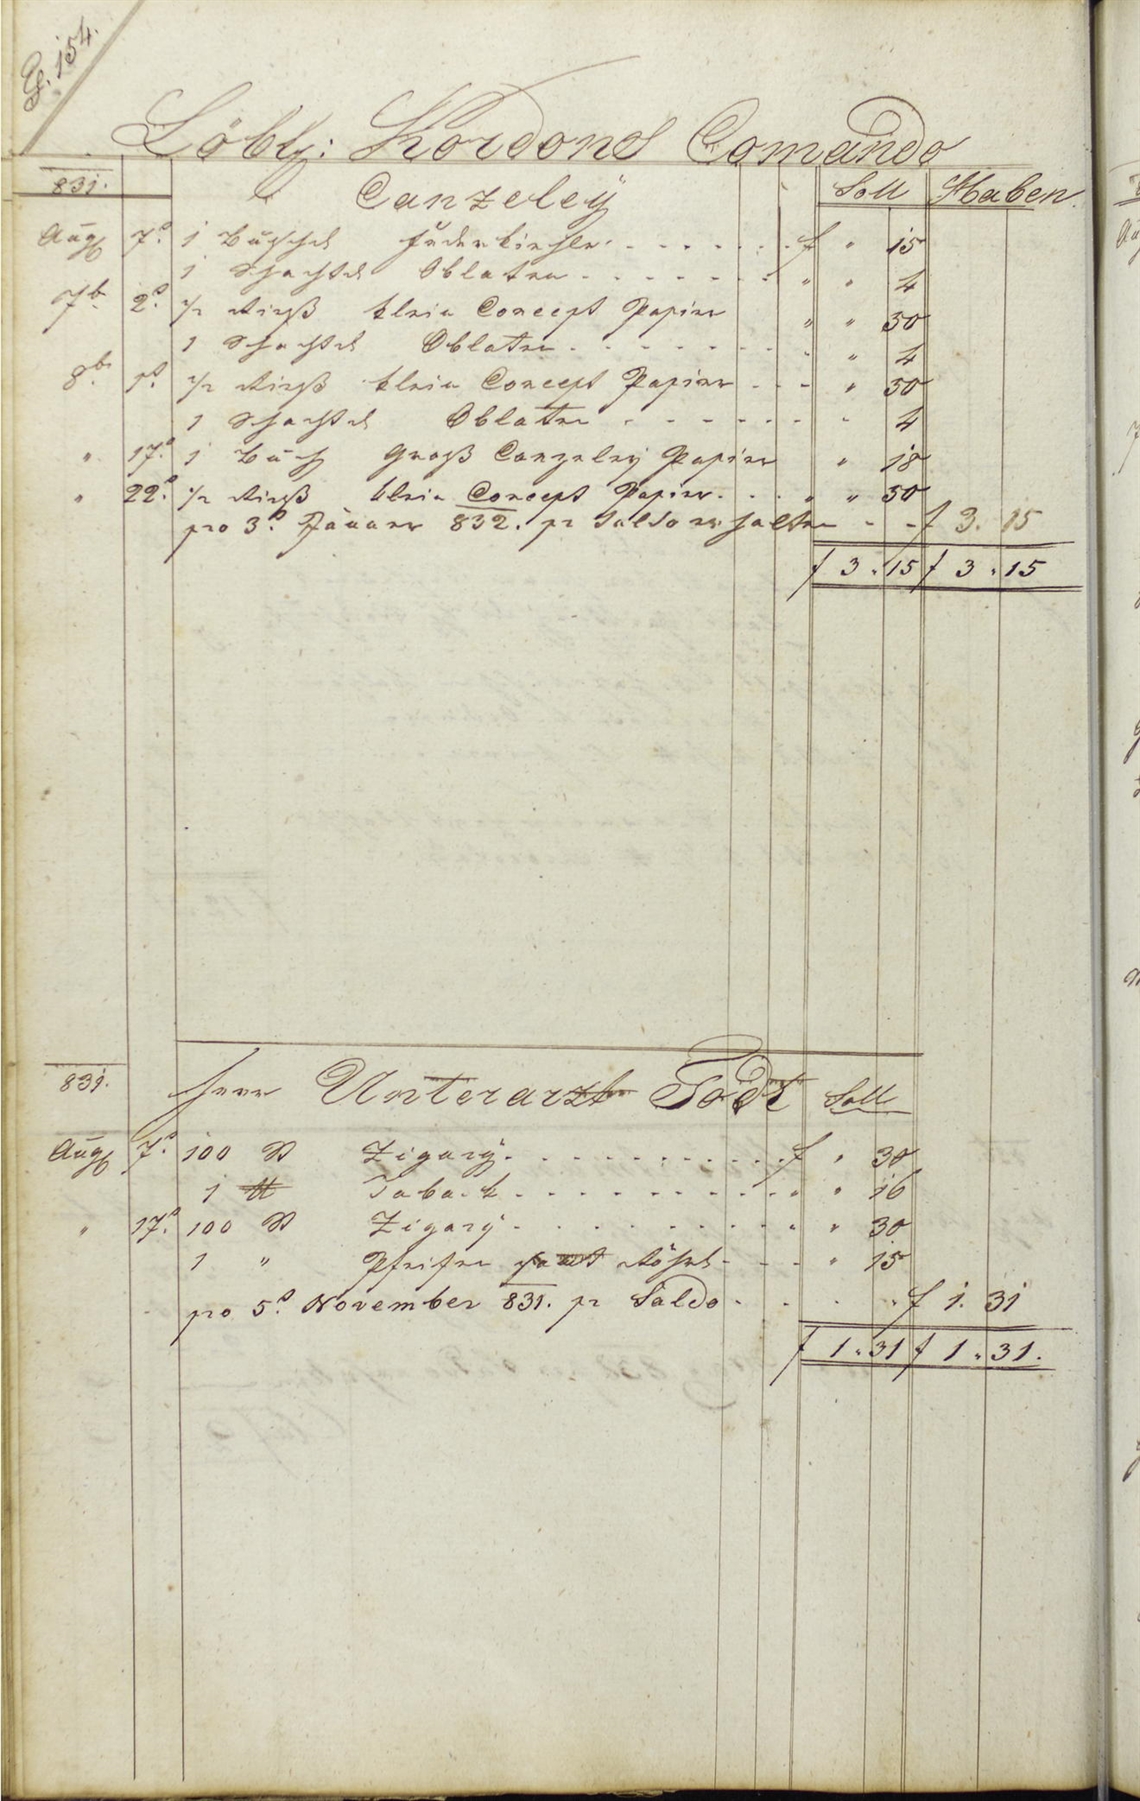 154.
Löbl: Kordons Comando
831. Canzeley Soll Haben.
Aug 7. 1 Büschl Federkiehle f " 15
1 Schachtel Oblaten " " 4
7b 2. ½ Rieß klein Concept Papier " " 50
1 Schachtel Oblaten " " 4
8b ½ Rieß klein Concept Papier " 50
1 Schachtel Oblaten " 4
" 17. 1 Buch Groß Canzeley Papier " 18
" 22. ½ Rieß klein Concept Papier " " 50
pro 3. Jänner 832. pr Saldo erhalten f 3. 15
f 3. 15 f 3. 15
831. Herr Unterarzt Tödt Soll
Aug 7. 100 St Zigary f " 30
1 ℔ Taback " " 16
" 17. 100 St Zigary " " 30
1 " Pfeifen samt Röhrl " 15
pro 5. November 831. pr Saldo f 1. 31
f 1. 31 f 1. 31.